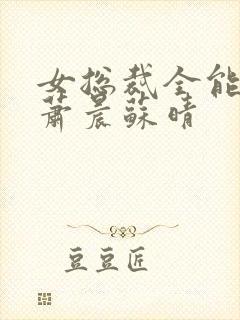 女总裁全能
萧晨苏晴
豆豆匠